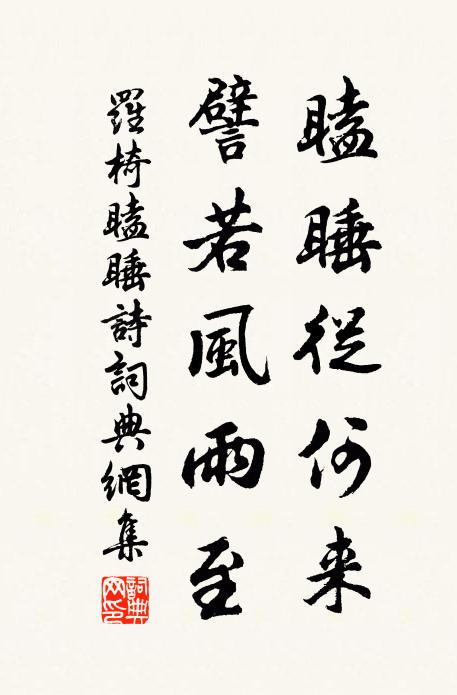 瞌睡從何来
譬若風雨至
羅椅瞌睡詩詞典網集
詞典
网印